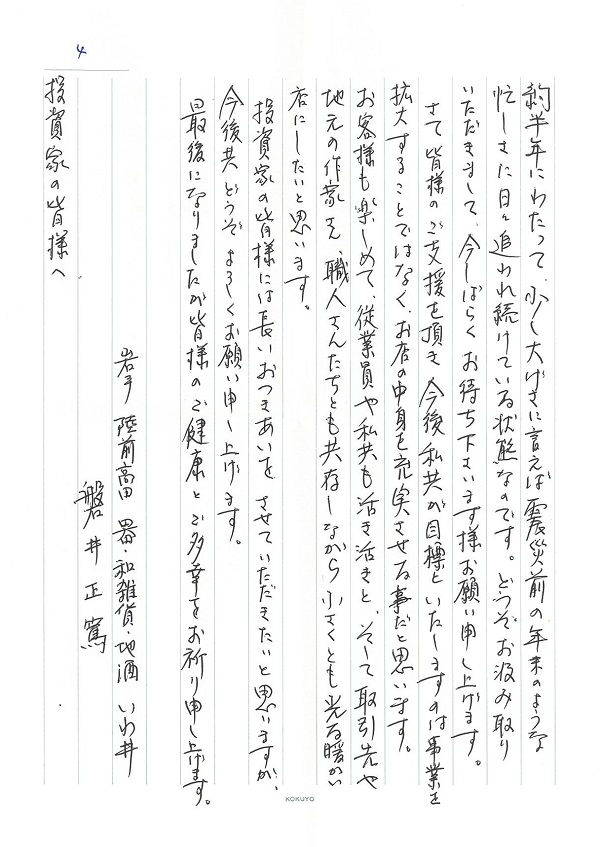 4
約半年にわたって、少し大げさに言えば震災前の年末のような
忙しさに日々追われ続けている状態なのです。どうぞお汲み取り
いただきまして、今しばらくお待ち下さいます様お願い申し上げます。
さて皆様のご支援を頂き今後私共が目標といたしますのは事業を
拡大することではなく、お店の中身を充実させる事だと思います。
お客様も楽しめて、従業員や私共も活き活きと、そして取引先や
地元の作家さん、職人さんたちとも共存しながら小さくとも光る暖かい
店にしたいと思います。
投資家の皆様には長いおつきあいをさせていただきたいと思いますが、
今後共どうぞよろしくお願い申し上げます。
最後になりましたが皆様のご健康とご多幸をお祈り申し上げます。
岩手 陸前高田 器・和雑貨・地酒 いわ井
磐井正篤
投資家の皆様へ
KOKUYO